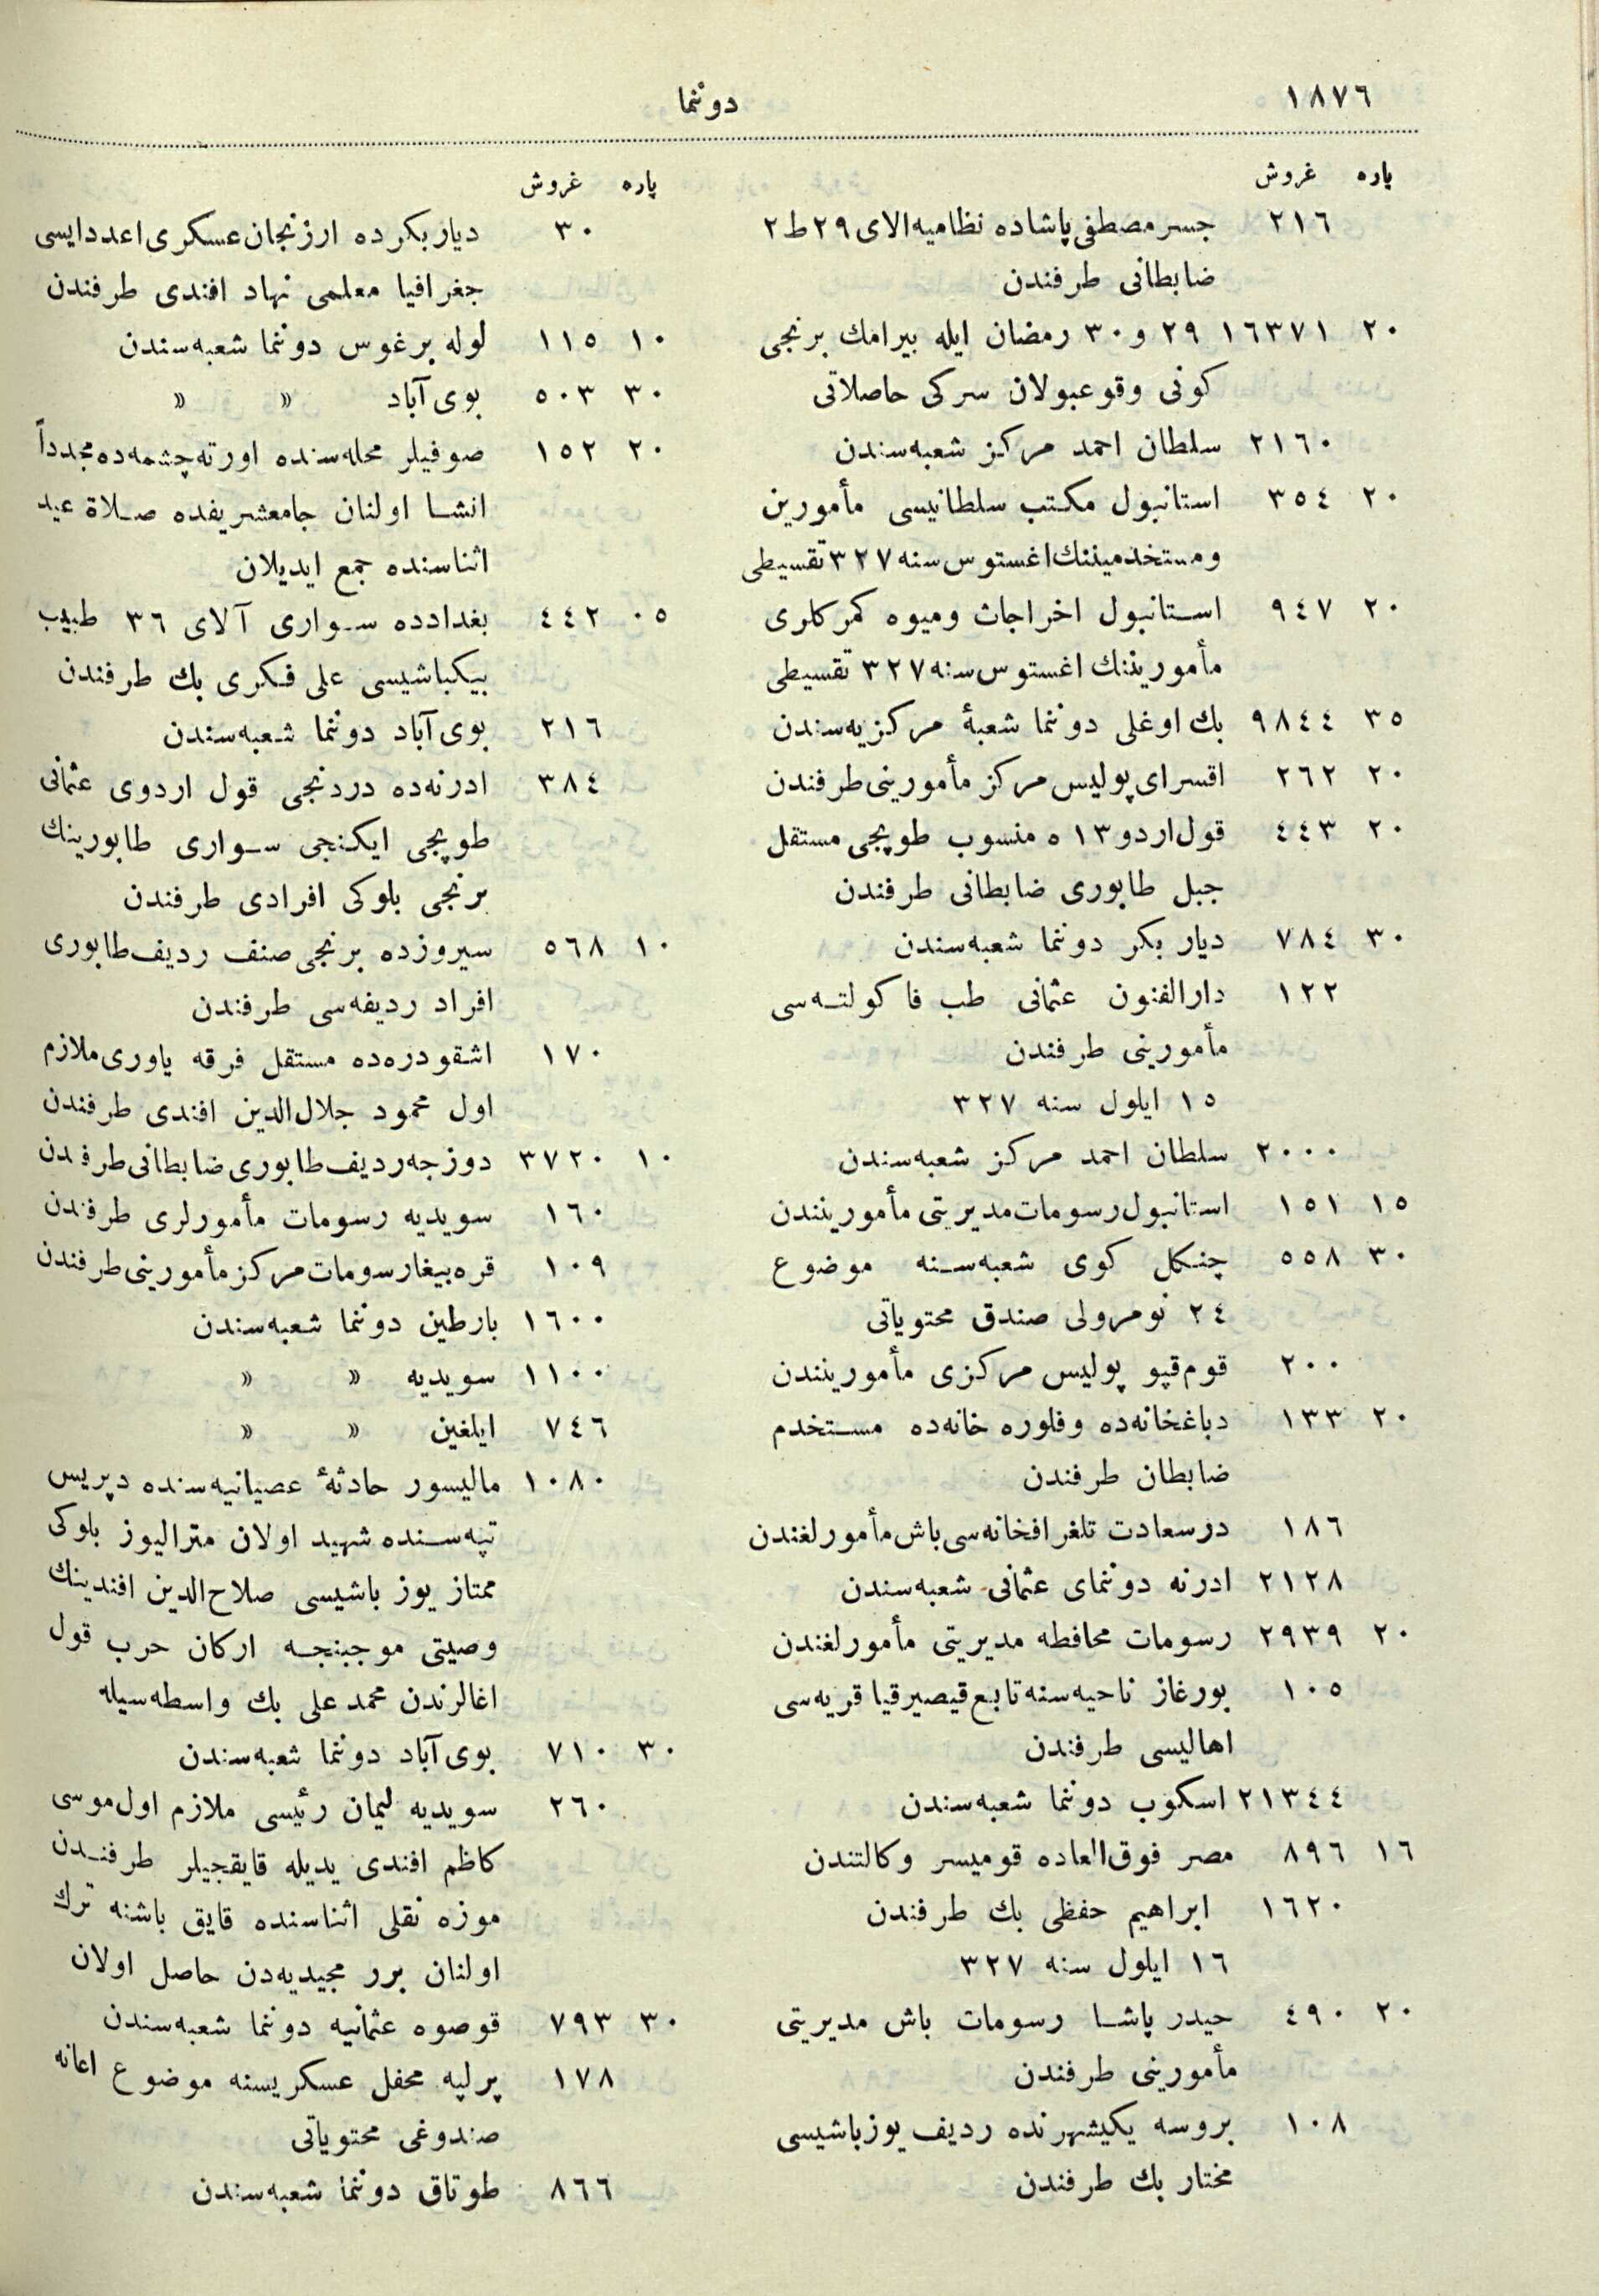 ١٨٧٦
دوننما
پاره غروش
٢١٦ جسر مصطفی پاشاده نظامیه الای ٢٩ ط ٢
ضابطانی طرفندن
٢٠ ١٦٣٧١ ٢٩ و ٣٠ رمضان ایله بیرامك برنجی
كونی وقوعبولان سركی حاصلاتی
٢١٦٠ سلطان احمد مركز شعبه‌سندن
٢٠ ٣٥٤ استانبول مكتب سلطانیسی مأمورین
ومستخدمیننك اغستوس سنه ٣٢٧ تقسیطی
٢٠ ٩٤٧ استانبول اخراجات ومیوه كمركلری
مأموریننك اغستوس سنه ٣٢٧ تقسیطی
٣٥ ٩٨٤٤ بك اوغلی دوننما شعبهٔ مركزیه‌سندن
٢٠ ٢٦٢ اقسرای پولیس مركز مأمورینی طرفندن
٢٠ ٤٤٣ قول اردو ١٣ ه منسوب طوپجی مستقل
جبل طابوری ضابطانی طرفندن
٣٠ ٧٨٤ دیار بكر دوننما شعبه‌سندن
١٢٢ دارالفنون عثمانی طب فاكولته‌سی
مأمورینی طرفندن
١٥ ایلول سنه ٣٢٧
٢٠٠٠ سلطان احمد مركز شعبه‌سندن
١٥ ١٥١ استانبول رسومات مدیریتی مأمورینندن
٣٠ ٥٥٨ چنكل كوی شعبه‌سنه موضوع
٢٤ نومرولی صندق محتویاتی
٢٠٠ قوم‌قپو پولیس مركزی مأمورینندن
٢٠ ١٣٣ دباغخانه‌ده وفلوره خانه‌ده مستخدم
ضابطان طرفندن
١٨٦ درسعادت تلغرافخانه‌سی باش مأمورلغندن
٢١٢٨ ادرنه دوننمای عثمانی شعبه‌سندن
٢٠ ٢٩٣٩ رسومات محافظه مدیریتی مأمورلغندن
١٠٥ بورغاز ناحیه‌سنه تابع قیصیرقیا قریه‌سی
اهالیسی طرفندن
٢١٣٤٤ اسكوب دوننما شعبه‌سندن
١٦ ٨٩٦ مصر فوق‌العاده قومیسر وكالتندن
١٦٢٠ ابراهیم حفظی بك طرفندن
١٦ ایلول سنه ٣٢٧
٢٠ ٤٩٠ حیدر پاشا رسومات باش مدیریتی
مأمورینی طرفندن
١٠٨ بروسه یكیشهرنده ردیف یوزباشیسی
مختار بك طرفندن
پاره غروش
٣٠ دیاربكرده ارزنجان عسكری اعدادیسی
جغرافیا معلمی نهاد افندی طرفندن
١٠ ١١٥ لوله برغوس دوننما شعبه‌سندن
٣٠ ٥٠٣ بوی‌آباد » »
٢٠ ١٥٢ صوفیلر محله‌سنده اورته‌چشمه‌ده مجدداً
انشا اولنان جامعشریفده صلاة عید
اثناسنده جمع ایدیلان
٠٥ ٤٤٢ بغدادده سواری آلای ٣٦ طبیب
بیكباشیسی علی فكری بك طرفندن
٢١٦ بوی‌آباد دوننما شعبه‌سندن
٣٨٤ ادرنه‌ده دردنجی قول اردوی عثمانی
طوپجی ایكنجی سواری طابورینك
برنجی بلوكی افرادی طرفندن
١٠ ٥٦٨ سیروزده برنجی صنف ردیف طابوری
افراد ردیفه‌سی طرفندن
١٧٠ اشقودره‌ده مستقل فرقه یاوری ملازم
اول محمود جلال‌الدین افندی طرفندن
١٠ ٣٧٢٠ دوزجه ردیف طابوری ضابطانی طرفندن
١٦٠ سویدیه رسومات مأمورلری طرفندن
١٠٩ قره‌بیغا رسومات مركز مأمورینی طرفندن
١٦٠٠ بارطین دوننما شعبه‌سندن
١١٠٠ سویدیه » »
٧٤٦ ایلغین » »
١٠٨٠ مالیسور حادثهٔ عصیانیه‌سنده دپریس
تپه‌سنده شهید اولان مترالیوز بلوكی
ممتاز یوز باشیسی صلاح‌الدین افندینك
وصیتی موجبنجه اركان حرب قول
اغالرندن محمد علی بك واسطه‌سیله
٣٠ ٧١٠ بوی‌آباد دوننما شعبه‌سندن
٢٦٠ سویدیه لیمان رئیسی ملازم اول موسی
كاظم افندی یدیله قایقجیلر طرفندن
موزه نقلی اثناسنده قایق باشنه ترك
اولنان برر مجیدیه‌دن حاصل اولان
٣٠ ٧٩٣ قوصوه عثمانیه دوننما شعبه‌سندن
١٧٨ پرلپه محفل عسكریسنه موضوع اعانه
صندوغی محتویاتی
٨٦٦ طوتاق دوننما شعبه‌سندن